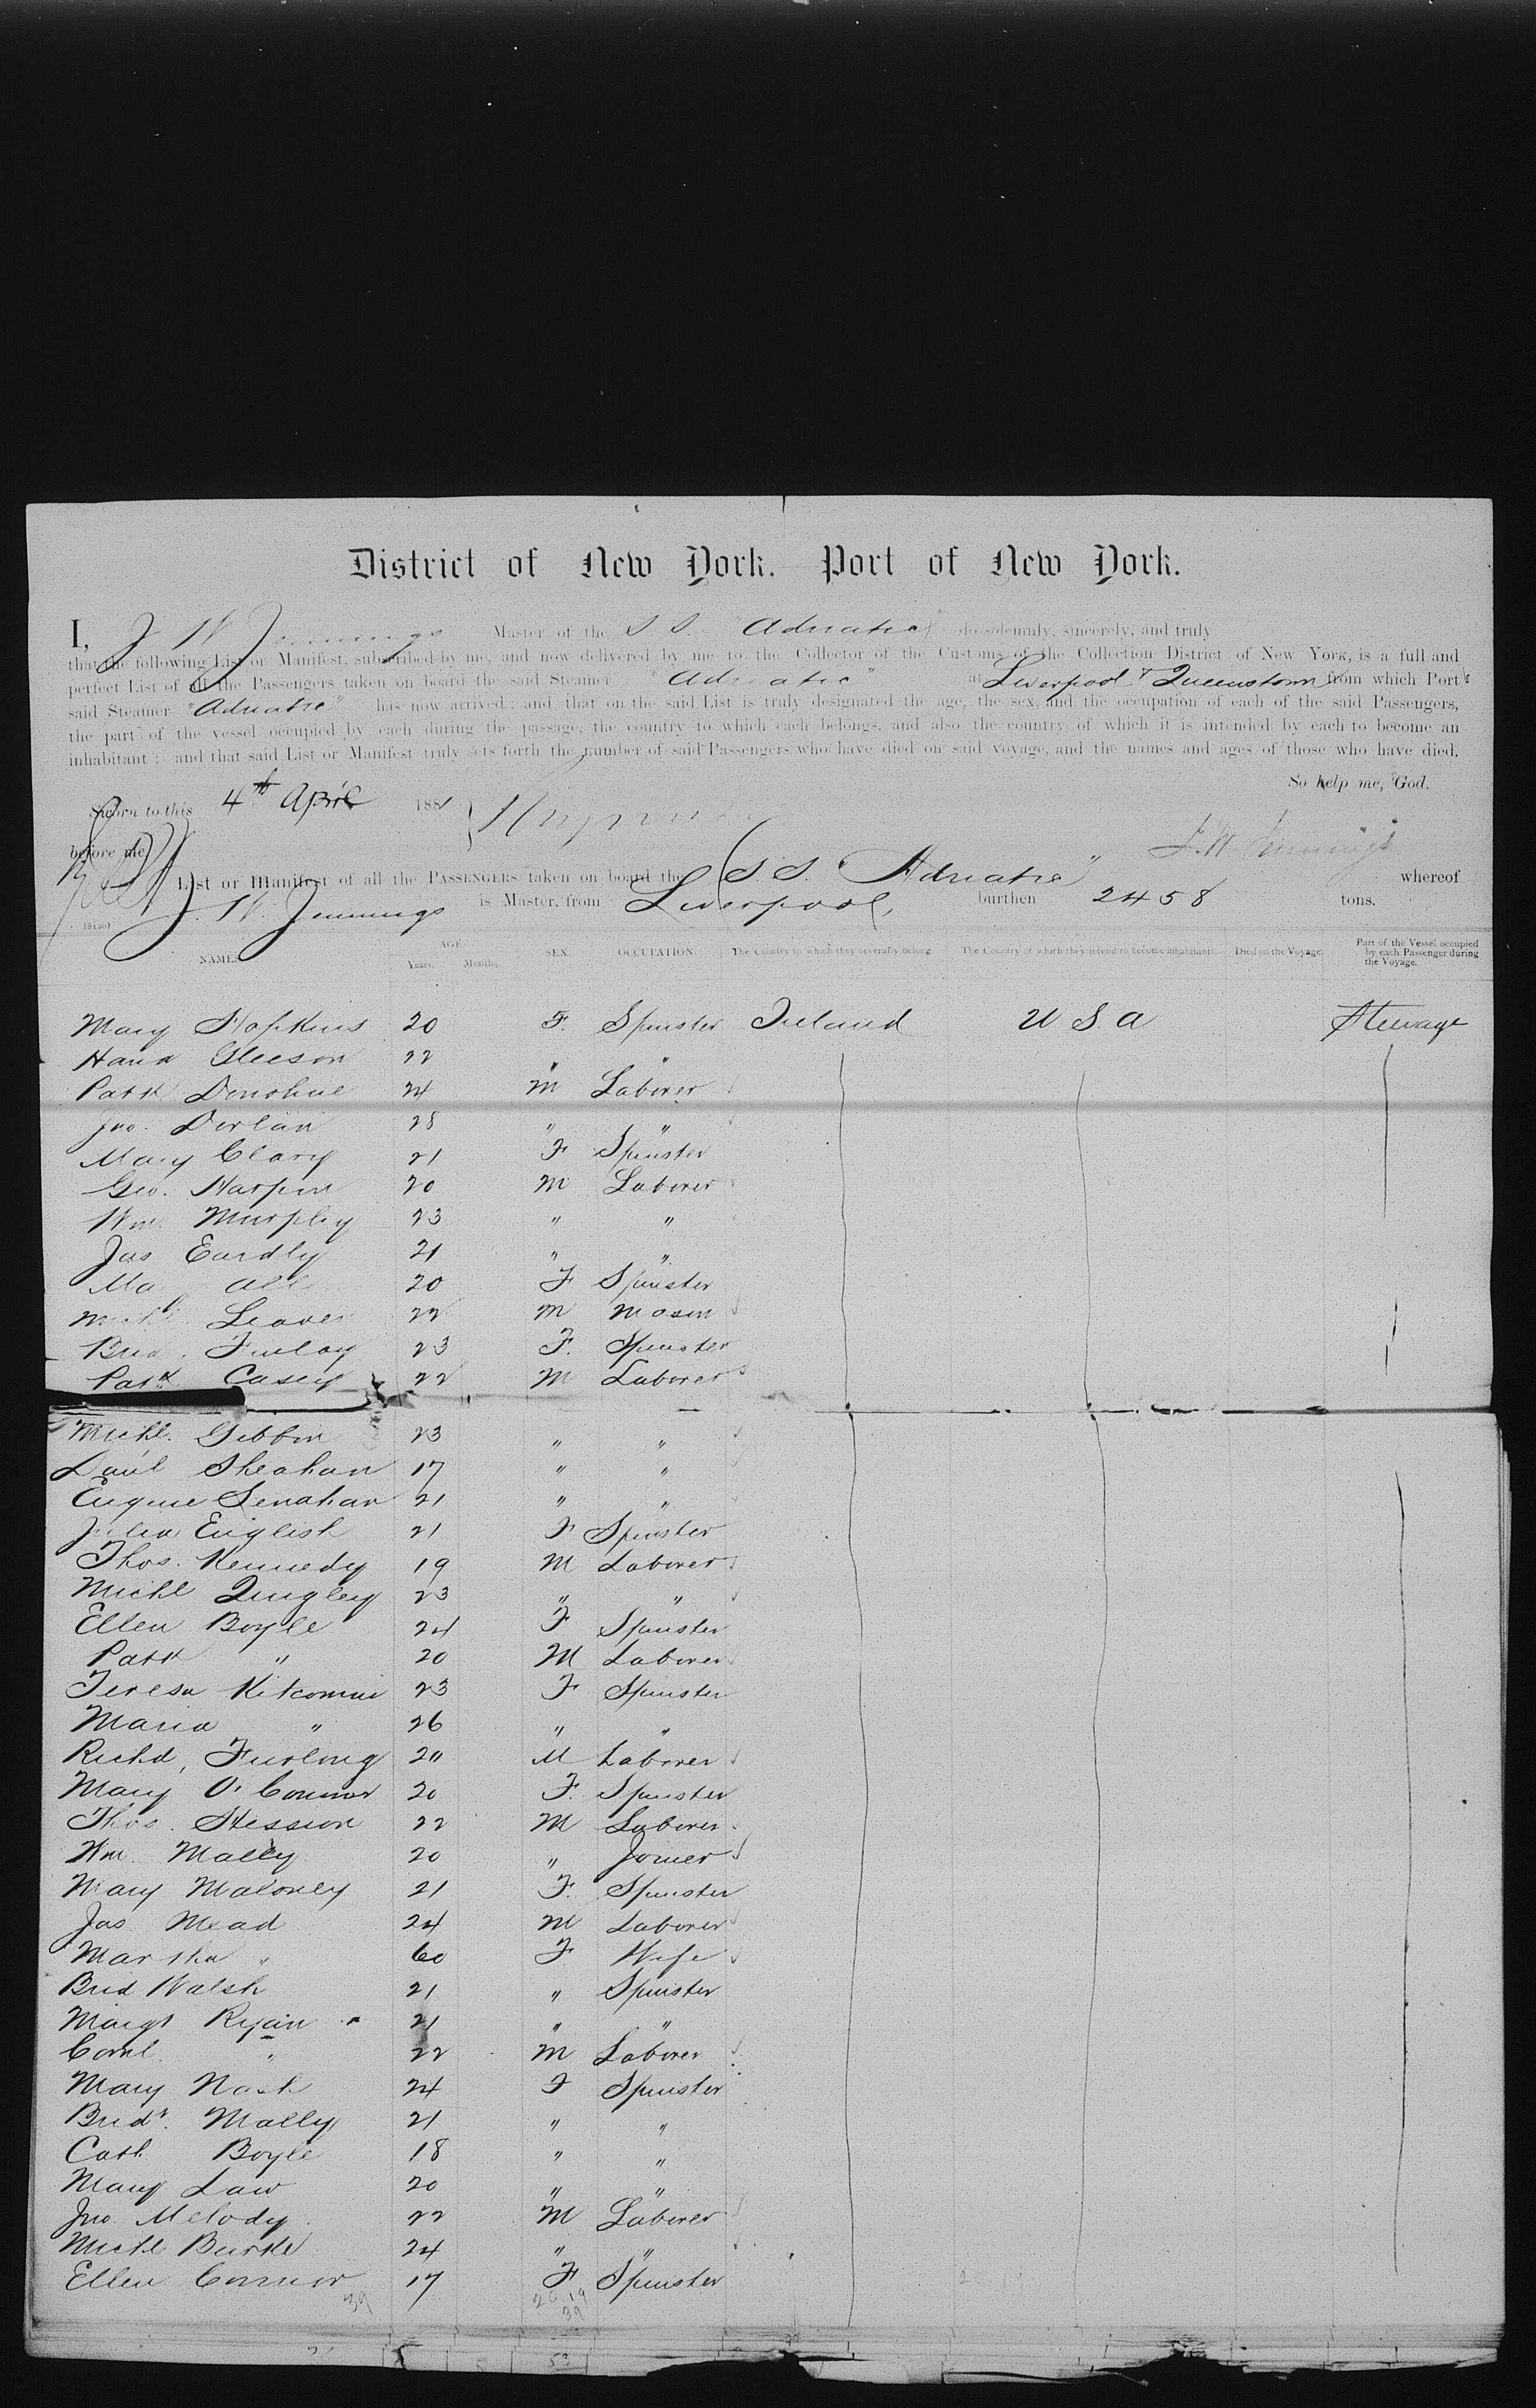 District of New York. Port of New York.
I, J W Jennings Master of the S S. "Adriatic" do solemnly, sincerely, and truly
that the following List or Manifest, subscribed by me, and now delivered by me to the Collector of the Customs of the Collection District of New York, is a full and
perfect List of all the Passengers taken on board the said Steamer "Adriatic" at Liverpool & Queenstown from which Port
said Steamer "Adriatic" has now arrived: and that on the said List is truly designated the age, the sex, and the occupation of each of the said Passengers,
the part of the vessel occupied by each during the passage, the country to which each belongs, and also the country of which it is intended by each to become an
inhabitant: and that said List or Manifest truly sets forth the number of said Passengers who have died on said voyage, and the names and ages of those who have died.
So help me, God.
Sworn to this 4th April 1881
before me J. W Jennings
List or Manifest of all the PASSENGERS taken on board the S S. "Adriatic" whereof
J. W. Jennings is Master, from Liverpool, burthen 2458 tons.
NAMES. AGE Years. Months. SEX. OCCUPATION. The Country to which they severally belong. The Country of which they intend to become inhabitants. Died on the Voyage. Part of the Vessel occupied by each Passenger during the Voyage.
Mary Hopkins 20 F. Spinster Ireland U S A Steerage
Hana Gleeson 22 " "
Patk Donohue 24 M Laborer
Jno. Dorlan 28 " "
Mary Clary 21 F Spinster
Geo. Harpin 20 M Laborer
Wm. Murphy 23 " "
Jas Eardly 21 " "
20 F Spinster
22 M Mason
Finlay 23 F. Spinster
Patk Casey 22 M Laborer
Michl. Gibbon 23 " "
Danl Sheahan 17 " "
Eugene Lenahan 21 " "
Julia English 21 F Spinster
Thos. Kennedy 19 M Laborer
Michl Quigley 23 " "
Ellen Boyle 24 F Spinster
Patk " 20 M Laborer
Teresa 23 F Spinster
Maria " 26 " "
Richd, Furlong 20 M Laborer
Mary O'Connor 20 F. Spinster
Thos. Hession 22 M Laborer
Wm. Mally 20 " Joiner
Mary Maloney 21 F. Spinster
Jas Mead 24 M Laborer
Martha " 60 F Wife
Brid Walsh 21 " Spinster
Margt Ryan 21 " "
Cornl. " 22 M Laborer
Mary Nash 24 F Spinster
Bridt. Mally 21 " "
Cath Boyle 18 " "
Mary Law 20 " "
Jno. Melody 22 M Laborer
Michl Burke 24 " "
Ellen Connor 17 F Spinster
39 20 19
39
53